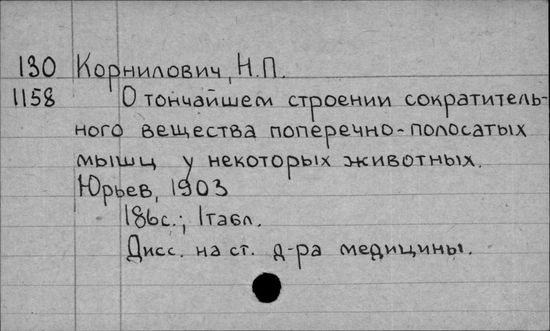 130 Корнилович, Н.П.
1158 О тончайшем строении сократитель-
ного вещества поперечно-полосатых
мышц у некоторых животных.
Юрьев, 1903
186с.; 1табл.
Дисс. на ст. д-ра медицины.